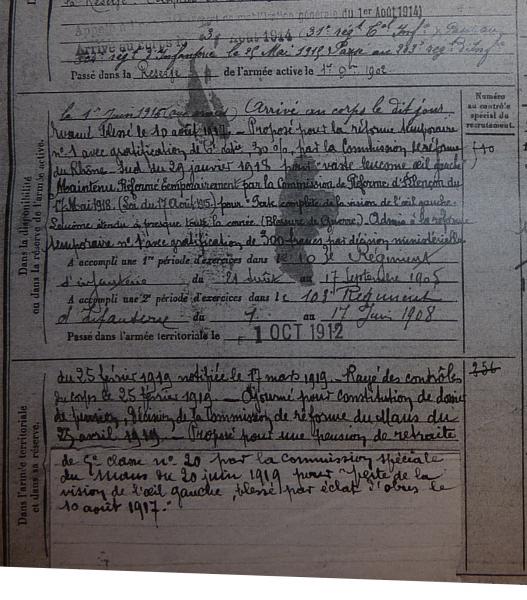 la Réserve
mobilisation générale du 1er Août 1914)
Arrivé au corps le 3 Août 1914 (31e régt Ct Inf.
régt d'Infanterie le 25 Mai 1915 Passé au régt d'Inf.
Passé dans la Réserve de l'armée active le 1er 9bre 1902
Numéro
au contrôle
spécial du
recrutement.
Dans la disponibilité
ou dans la réserve de l'armée active.
le 1er Juin 1915 Arrivé au corps le dit jour
Évacué blessé le 10 août 1917 - Proposé pour la réforme temporaire
n° 1 avec gratification de 30 %, par la Commission de réforme
du Rhône Sud du 29 janvier 1918 pour "vaste leucome œil gauche"
Maintenu Réformé temporairement par la Commission de Réforme d'Alençon du
17 Mai 1918. (Loi du 17 Avril 1915) pour "Perte complète de la vision de l'œil gauche -
Leucome étendu à presque toute la cornée (Blessure de Guerre). Admis à la réforme
temporaire n° 1 avec gratification de 300 francs par décision ministérielle
A accompli une 1re période d'exercices dans le 103e Régiment
d'infanterie du 21 Août au 17 Septembre 1905
A accompli une 2e période d'exercices dans le 103e Régiment
d'Infanterie du 1 au 17 Juin 1908
Passé dans l'armée territoriale le 1 OCT 1912
Dans l'armée territoriale
et dans sa réserve.
du 25 février 1919 notifiée le 17 mars 1919. - Rayé des contrôles
du corps le 25 février 1919. - Ajourné pour constitution de dossier
de pension, Décision de la Commission de réforme du Mans du
23 avril 1919. - Proposé pour une pension de retraite
256
de 5e classe n° 20 par la Commission spéciale
du Mans du 20 juin 1919 pour "perte de la
vision de l'œil gauche, blessé par éclat d'obus le
10 août 1917."